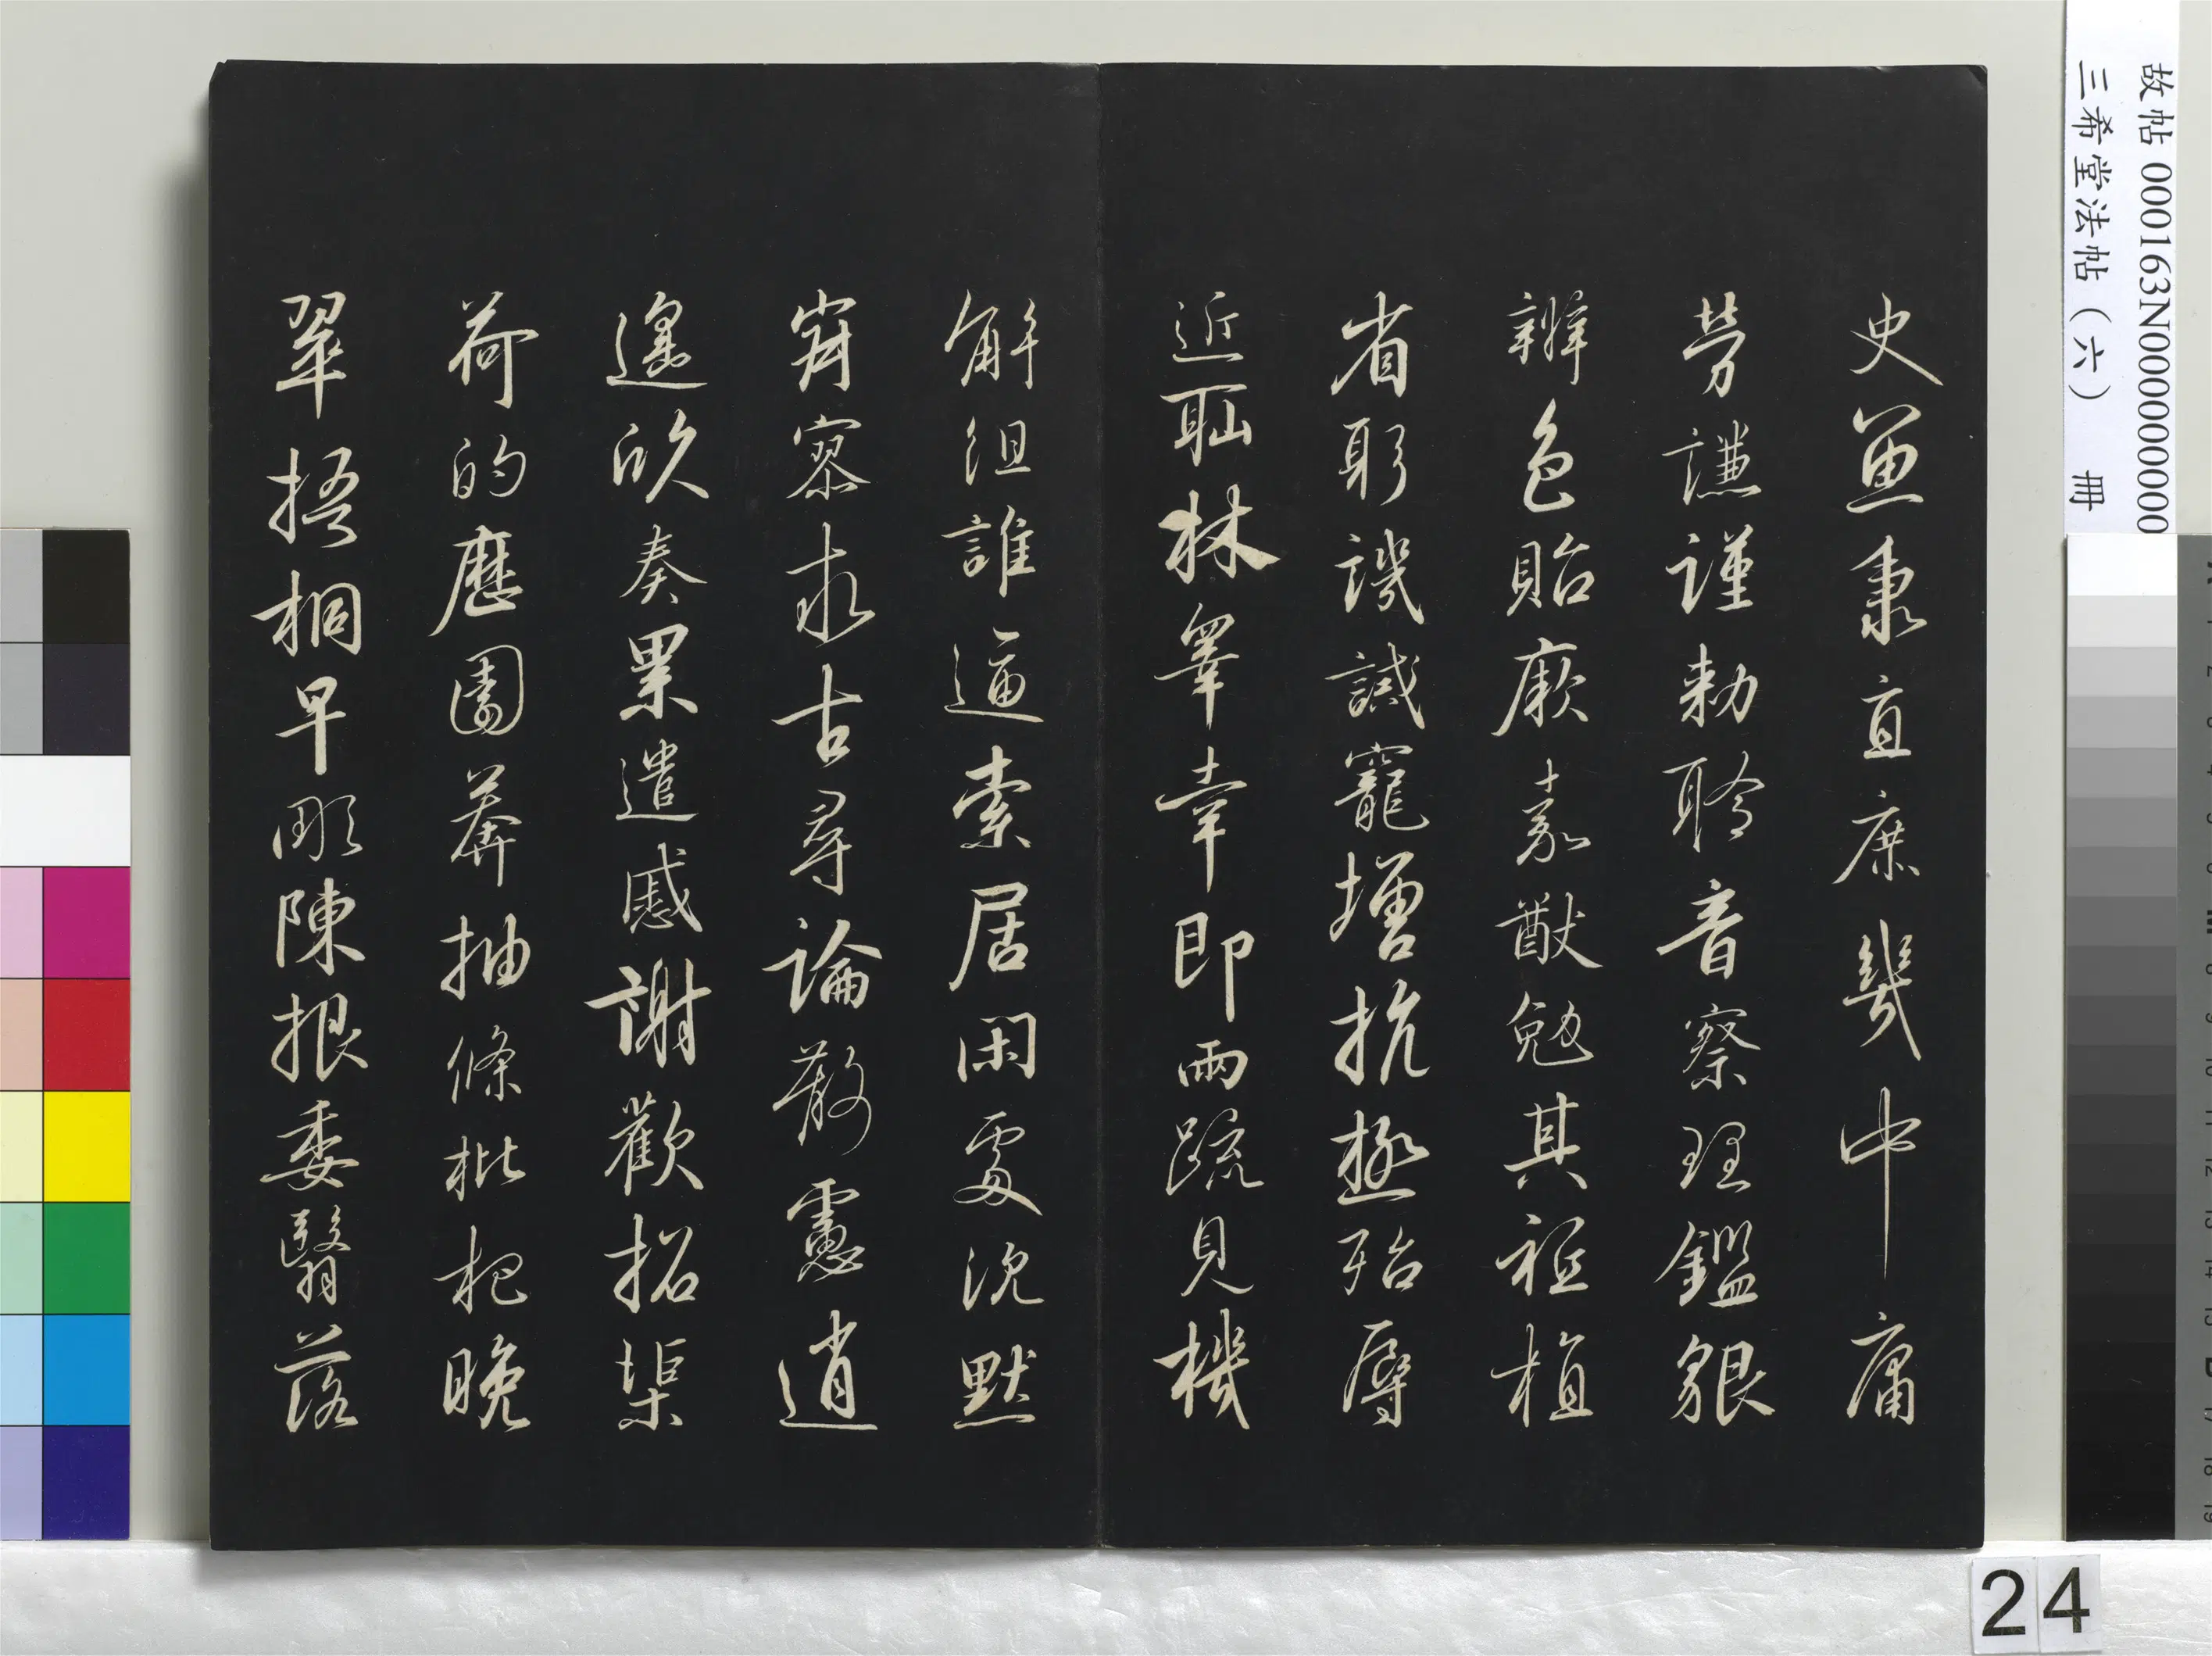 史魚秉直庶幾中庸
勞謙謹勅聆音察理鑑貌
辨色貽厥嘉猷勉其祗植
省躬譏誡寵增抗極殆辱
近恥林睪幸即兩疏見機
解組誰逼索居閑處沈默
寂寥求古尋論散慮逍
遙欣奏累遣慼謝歡招渠
荷的歷園莽抽條枇杷晚
翠梧桐早彫陳根委翳落
故帖 000163N000000000
三希堂法帖（六） 冊
24